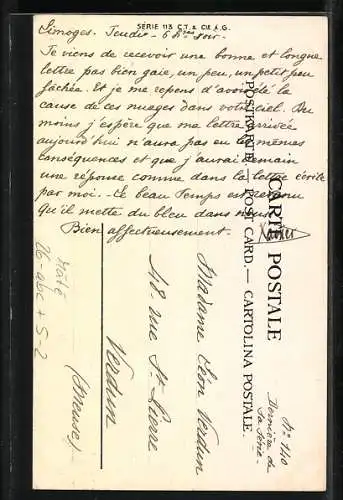 SÉRIE 113 C.T. & Cie A.G.
Limoges. Jeudi - 6 hres soir
Je viens de recevoir une bonne et longue
lettre pas bien gaie, un peu, un petit peu
fâchée. Et je me repens d'avoir été la
cause de ces nuages dans votre ciel. Du
moins j'espère que ma lettre arrivée
aujourd'hui n'aura pas eu les mêmes
conséquences et que j'aurai demain
une réponse comme dans la lettre écrite
par moi. - Le beau Temps est revenu
Qu'il mette du bleu dans nous
Bien affectueusement.
CARTE POSTALE
POSTKARTE. — POST CARD. — CARTOLINA POSTALE.
No 140
Dernière de
la Série.
Madame Léon Verdun
48. rue St Pierre
Verdun
(Meuse).
26 abc + 5-2